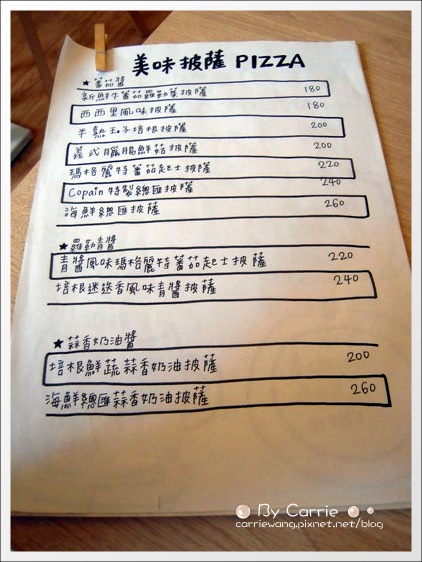 美味披薩 PIZZA
★蕃茄醬
新鮮牛蕃茄羅勒葉披薩 180
西西里風味披薩 180
半熟玉子培根披薩 200
義式臘腸鮮菇披薩 200
瑪格麗特蕃茄起士披薩 220
Copain特製總匯披薩 240
海鮮總匯披薩 260
★羅勒青醬
青醬風味瑪格麗特蕃茄起士披薩 220
培根迷迭香風味青醬披薩 240
★蒜香奶油醬
培根鮮蔬蒜香奶油披薩 200
海鮮總匯蒜香奶油披薩 260
By Carrie
carriewang.pixnet.net/blog